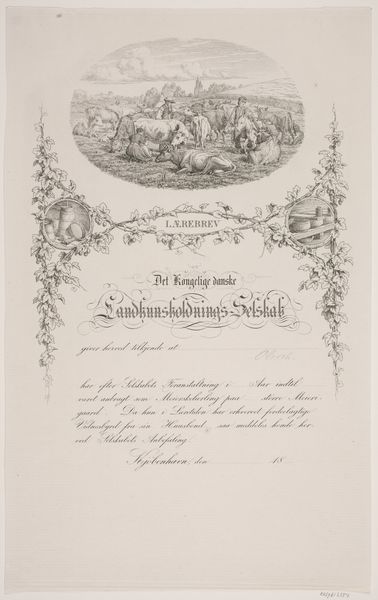 LÆREBREV
Det Kongelige danske
Landhuusholdnings-Selskab
giver herved tilkjende at
har efter Selskabets Foranstaltning i Aar indtil
været anbragt som Meierielærling paa derre Meieri-
gaard. Da hun i Læretiden har erhvervet fordeelagtige
Vidnesbyrd fra sin Huusbond, saa meddeles hende her-
ved Selskabets Anbefaling.
Kjöbenhavn, den 18